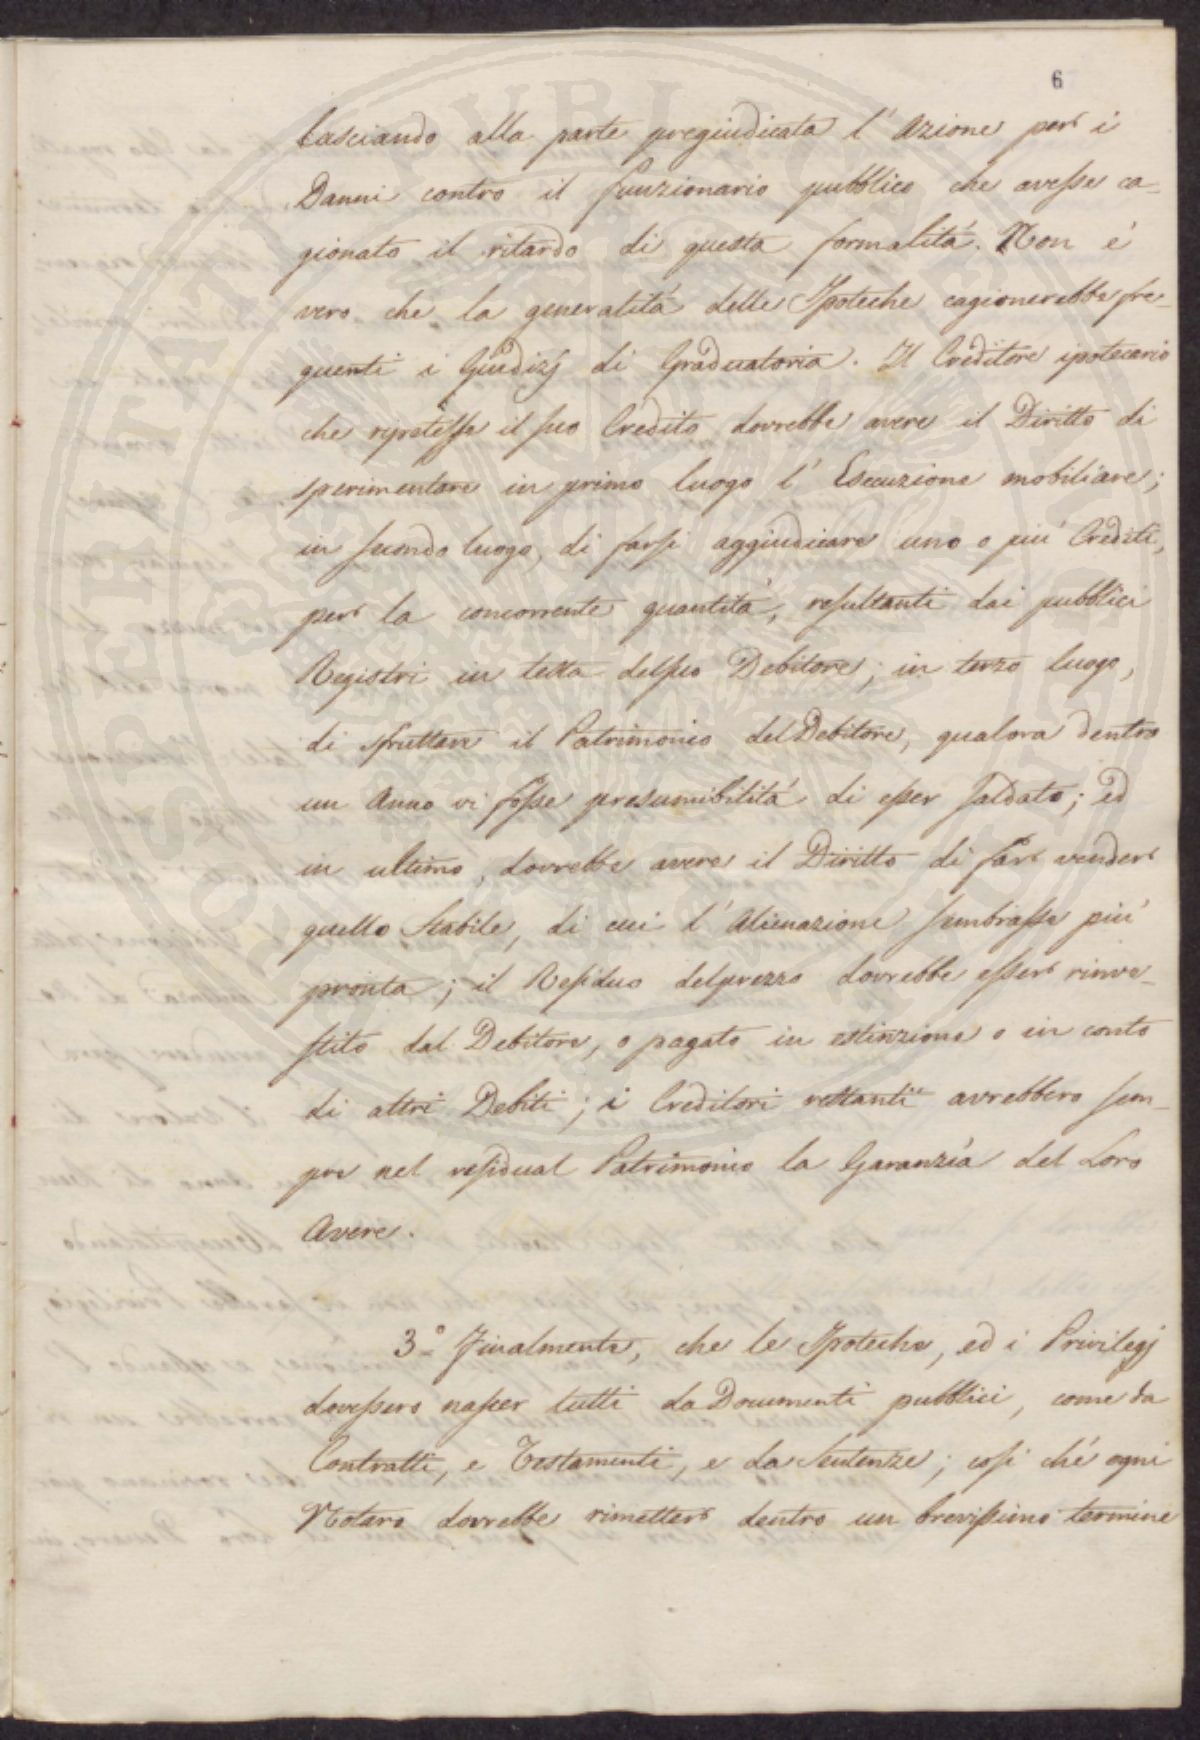 6
lasciando alla parte pregiudicata l'Azione per i
Danni contro il funzionario pubblico che avesse ca-
gionato il ritardo di questa formalità. Non é
vero che la generalità delle Ipoteche cagionerebbe fre-
quenti i Giudizj di Graduatoria. Il Creditore ipotecario
che ripetesse il suo Credito dovrebbe avere il Diritto di
sperimentare in primo luogo l'Esecuzione mobiliare;
in secondo luogo, di farsi aggiudicare uno o più Crediti,
per la concorrente quantità, resultanti dai pubblici
Registri in testa del suo Debitore; in terzo luogo,
di sfruttare il Patrimonio del Debitore, qualora dentro
un Anno vi fosse presumibilità di esser saldato; ed
in ultimo, dovrebbe avere il Diritto di far vender
quello Stabile, di cui l'Alienazione sembrasse più
pronta; il Residuo del prezzo dovrebbe esser rinve-
stito dal Debitore, o pagato in estinzione o in conto
di altri Debiti; i Creditori restanti avrebbero sem-
pre nel residual Patrimonio la Garanzía del Loro
Avere.
3.° Finalmente, che le Ipoteche, ed i Privilegj
dovessero nascer tutti da Documenti pubblici, come da
Contratti, e Testamenti, e da Sentenze; così ché ogni
Notaro dovrebbe rimetter dentro un brevissimo termine